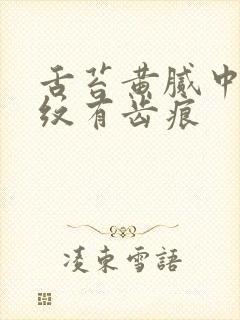 舌苔黄腻中
纹有齿痕
凌束雪語